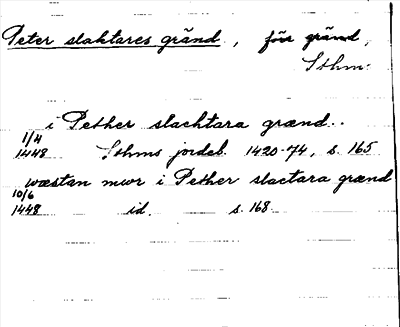 Peter slaktares gränd, förr gränd,
Sthm.
i Pether slachtara grænd..
1/4
1448 Sthms jordeb. 1420-74, s. 165
wæstan mwr i Pether slactara grænd
10/6
1448 id. s. 168.